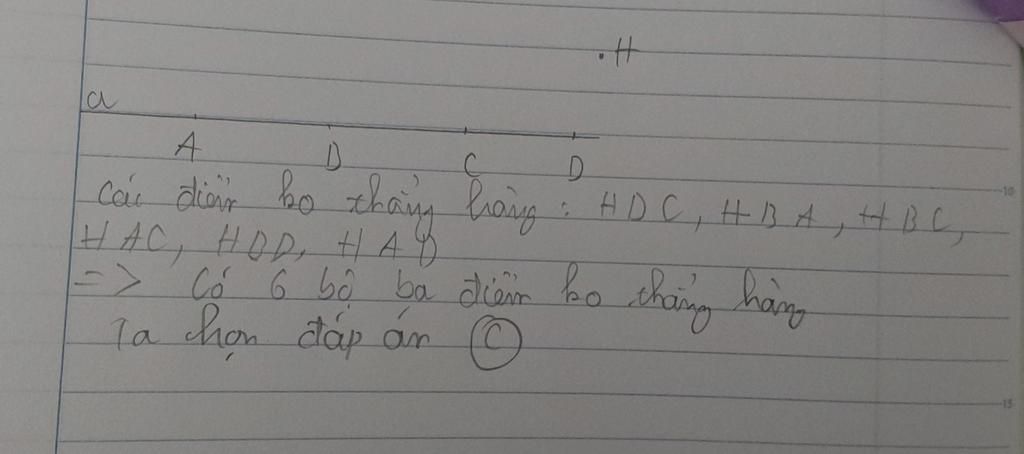 . H
a
A B C D
Các điểm ko thẳng hàng : HDC, HBA, HBC,
HAC, HBD, HAD
=> Có 6 bộ ba điểm ko thẳng hàng
Ta chọn đáp án C
10
15